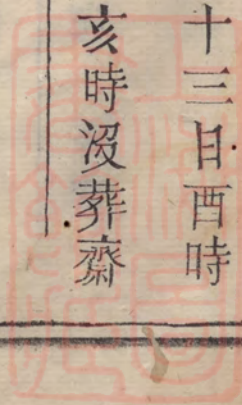 十三日酉時
亥時没葬齋